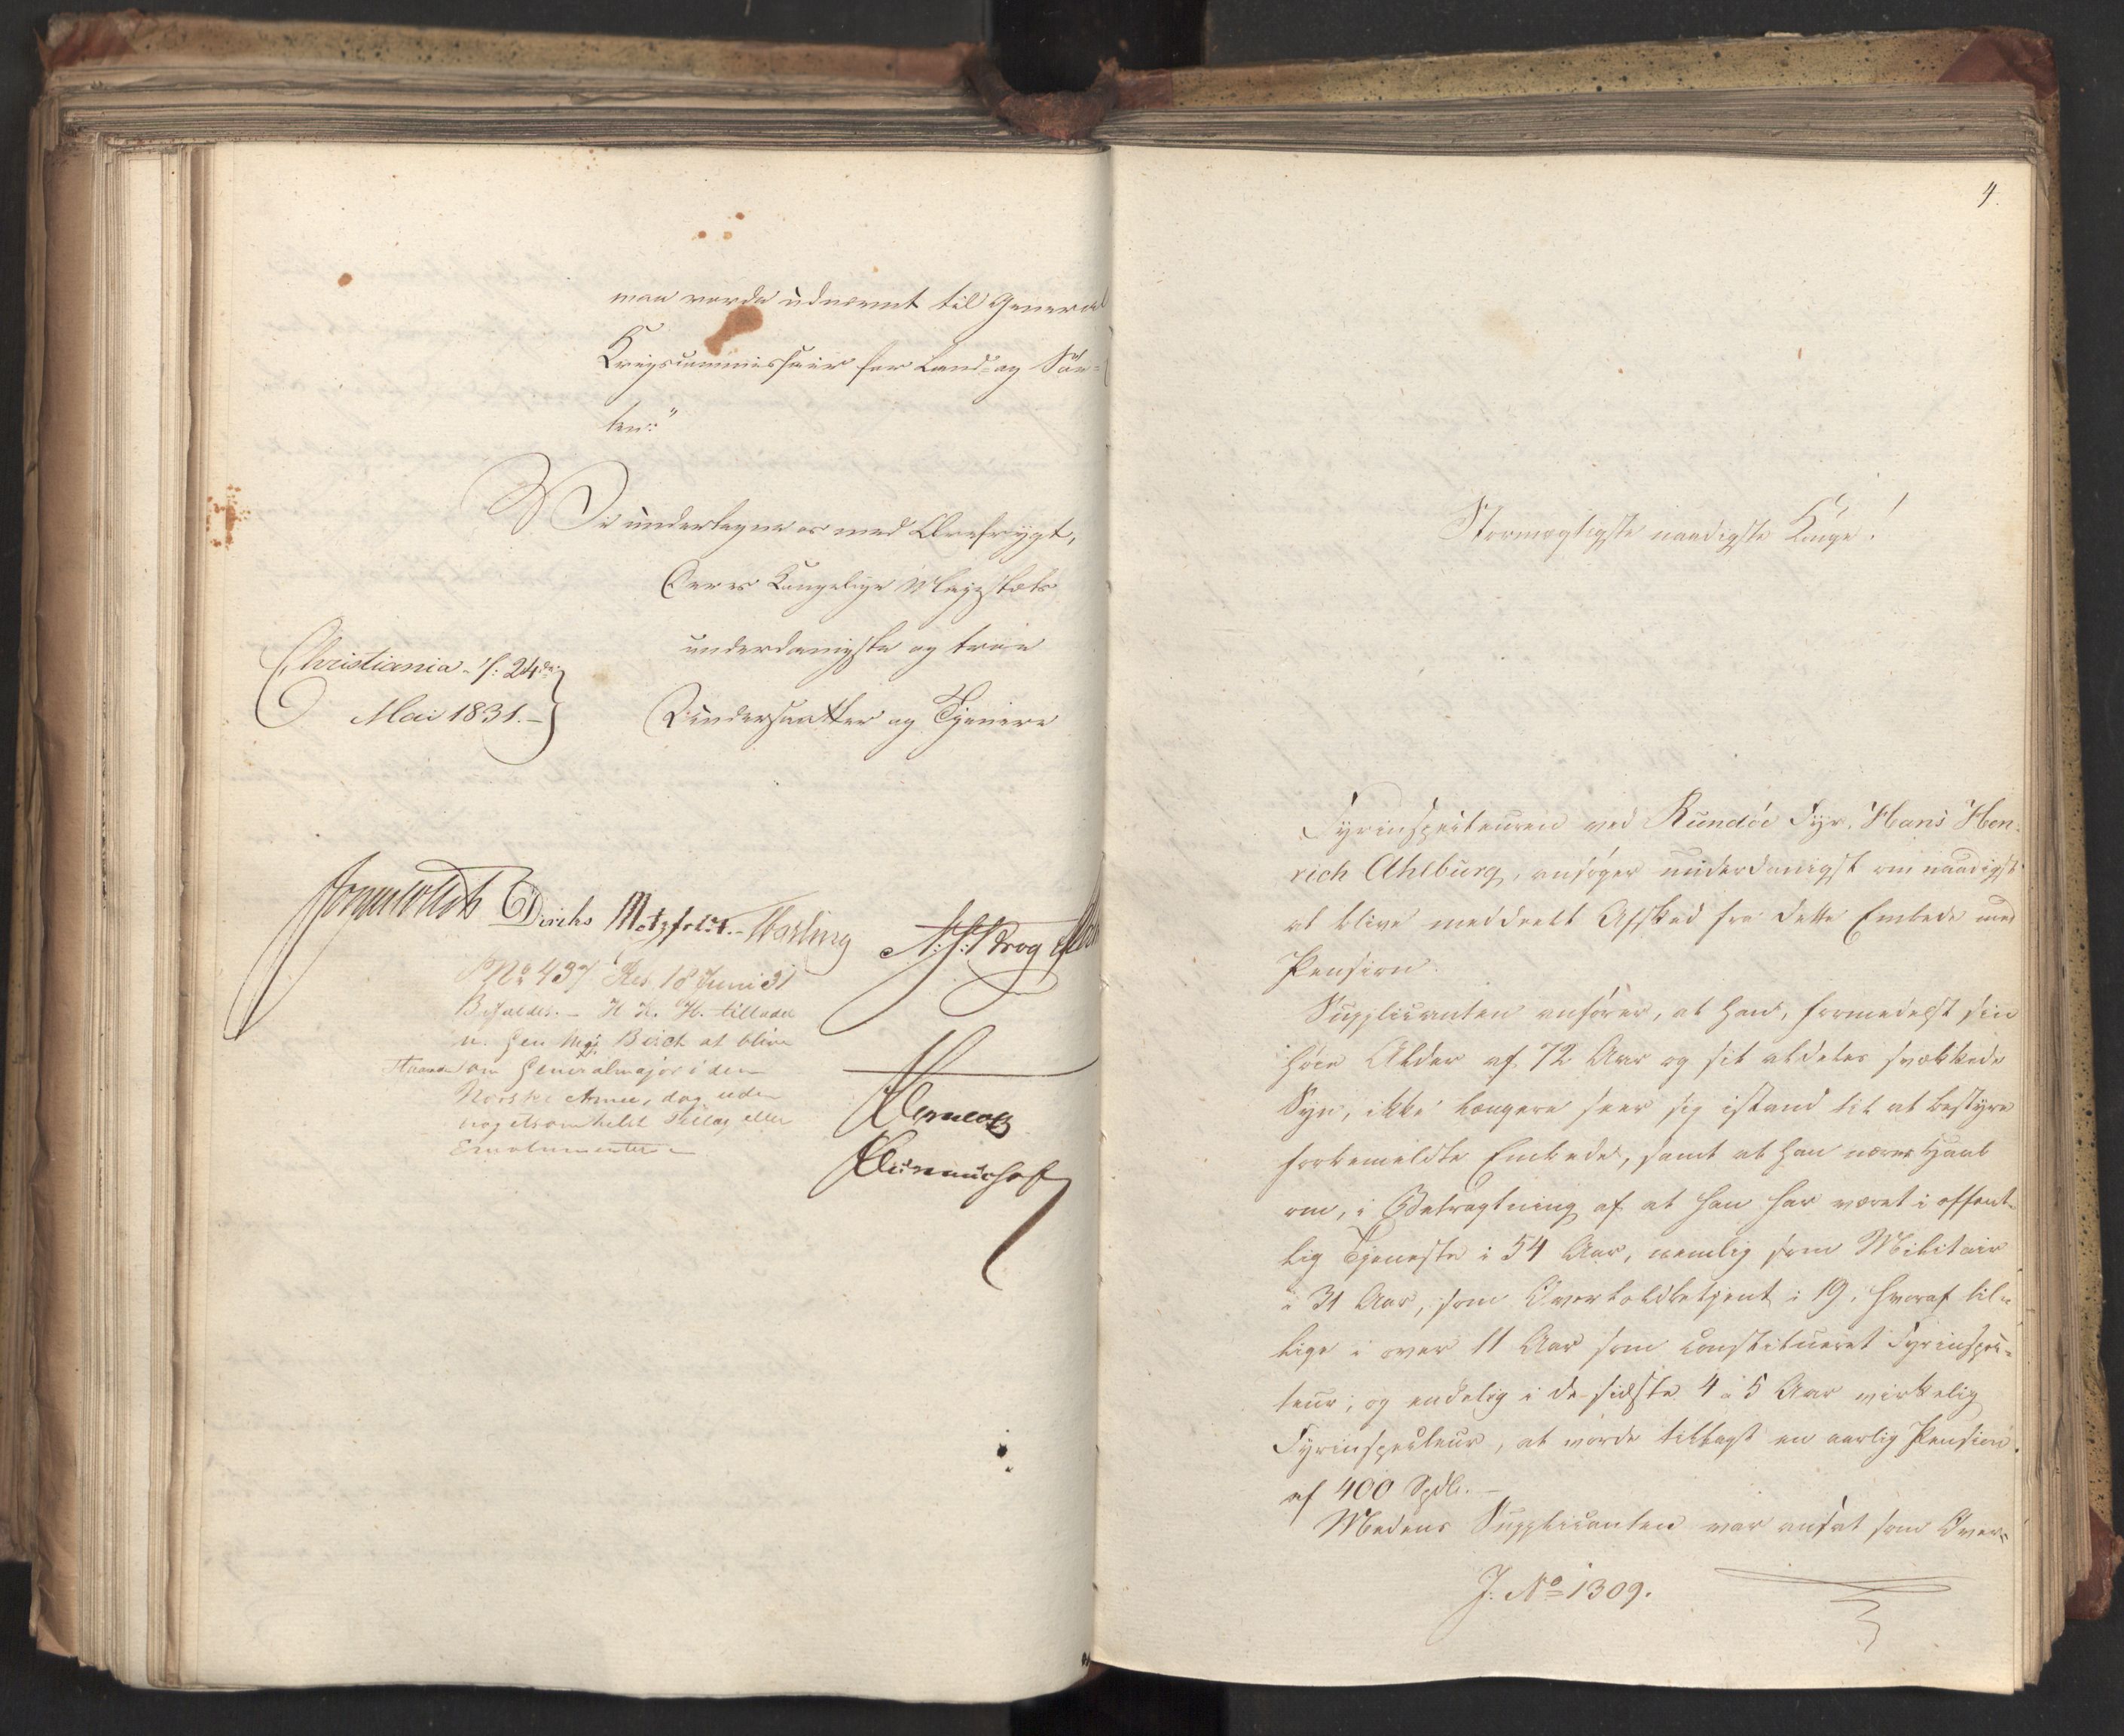 maa vorde udnævnt til General
Krigscommissair for Land- og Söe-
ten."
Vi undertegne os med Ærefrygt,
Deres Kongelige Majestæts
underdanigste og troe
Undersaatter og Tjenere
Christiania d: 24de
Mai 1831.-
Diriks Motzfeldt. N: J: Krog
No 437 Res. 18 Juni 31
Bifaldes. - H. K. H. tillader
Gen Maj: Birch at blive
som Generalmajor i den
Norske Armee, dog uden
nogetsomhelst Tillæg eller
Emolumenter -
4.
Stormægtigste naadigste Konge!
Fyrinspecteuren ved Rundöe Fyr, Hans Hen-
rich Ahlburg, ansøger underdanigst om naadigst
at blive meddeelt Afsked fra dette Embede med
Pension.
Supplicanten anfører, at han, formedelst sin
høie Alder af 72 Aar og sit aldeles svækkede
Syn, ikke længere seer sig istand til at bestyre
forbemeldte Embede, samt at han nærer Haab
om, i Betragtning af at han har været i offent-
lig Tjeneste i 54 Aar, nemlig som Militair
i 31 Aar, som Overtoldbetjent i 19, hvoraf til-
lige i over 11 Aar som constitueret Fyrinspec-
teur, og endelig i de sidste 4 á 5 Aar virkelig
Fyrinspecteur, at vorde tillagt en aarlig Pension
af 400 Spdlr. -
Medens Supplicanten var ansat som Over-
J: No 1309.